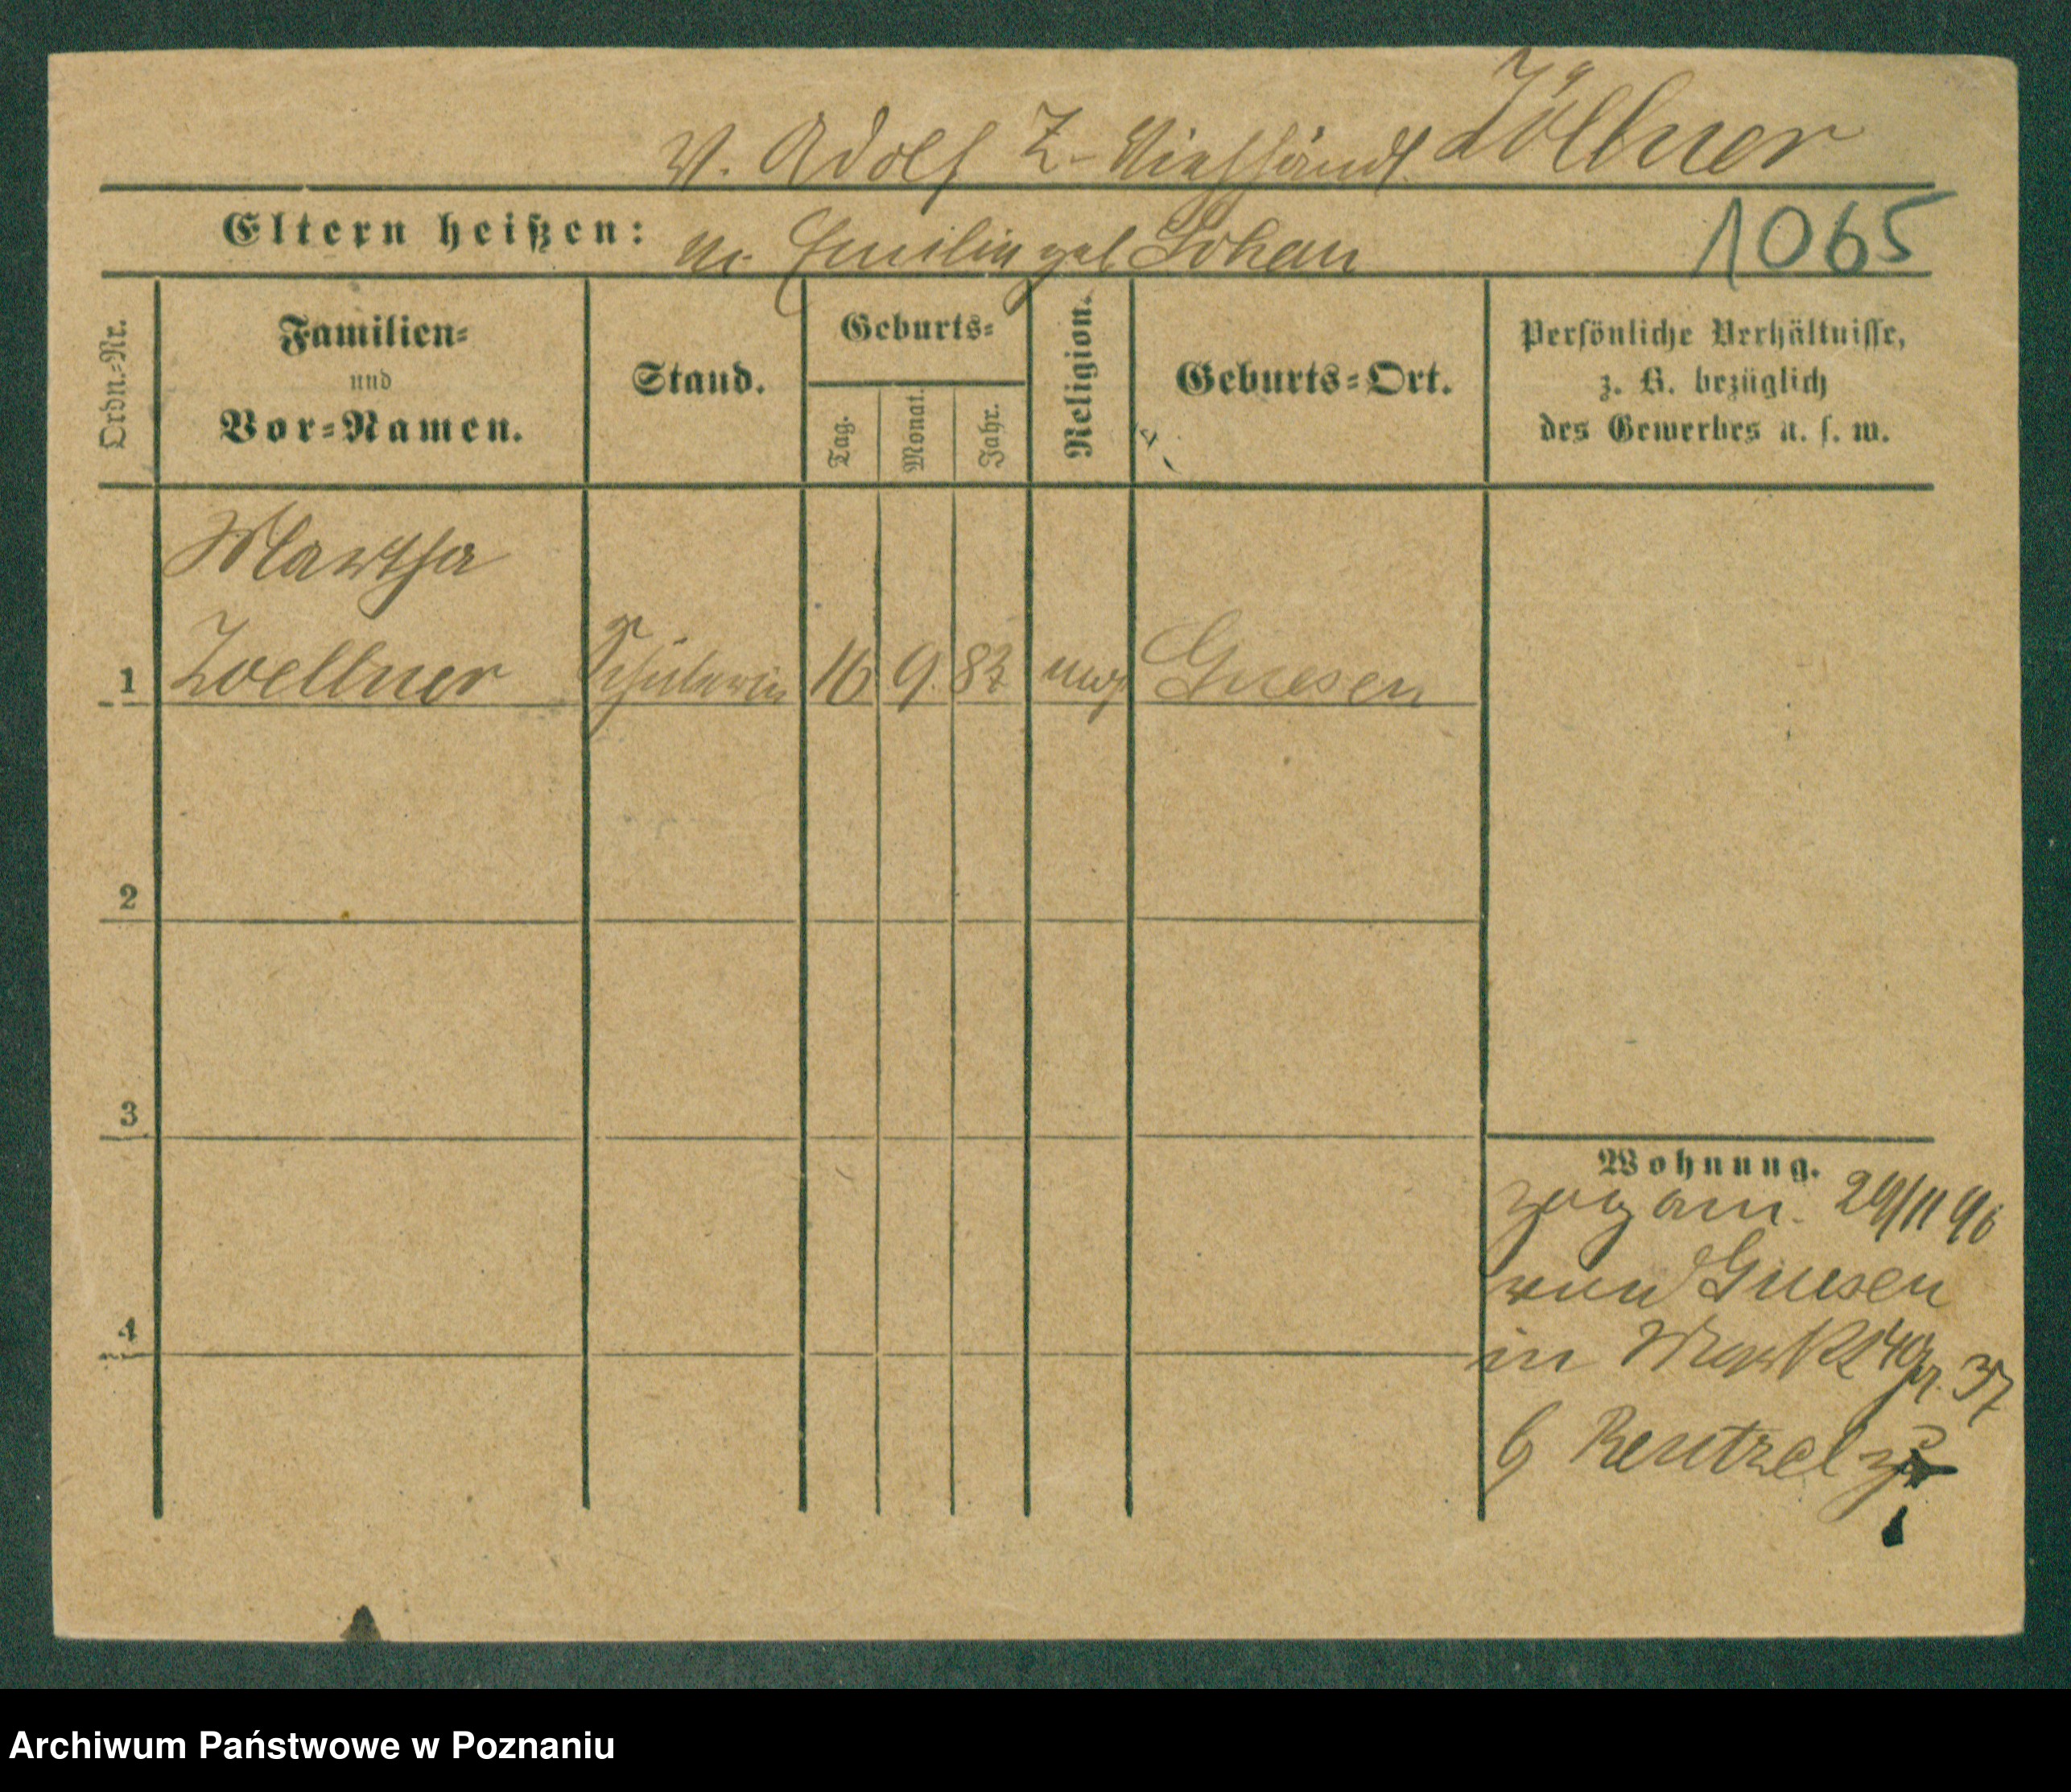 V. Adolf Z. Viehhändl. Zöllner
Eltern heißen: M. Emilie geb. Sohan
1065
Ordn.-Nr.
Familien-
und
Vor-Namen.
Stand.
Geburts-
Tag.
Monat.
Jahr.
Religion.
Geburts-Ort.
Persönliche Verhältnisse,
z. B. bezüglich
des Gewerbes u. s. w.
Martha
1 Zoellner Schülerin 16 9. 83 evg Gnesen
2
3
Wohnung.
zog am. 29/11 96
von Gnesen
in 37
b Rentzel zu
4
Archiwum Państwowe w Poznaniu